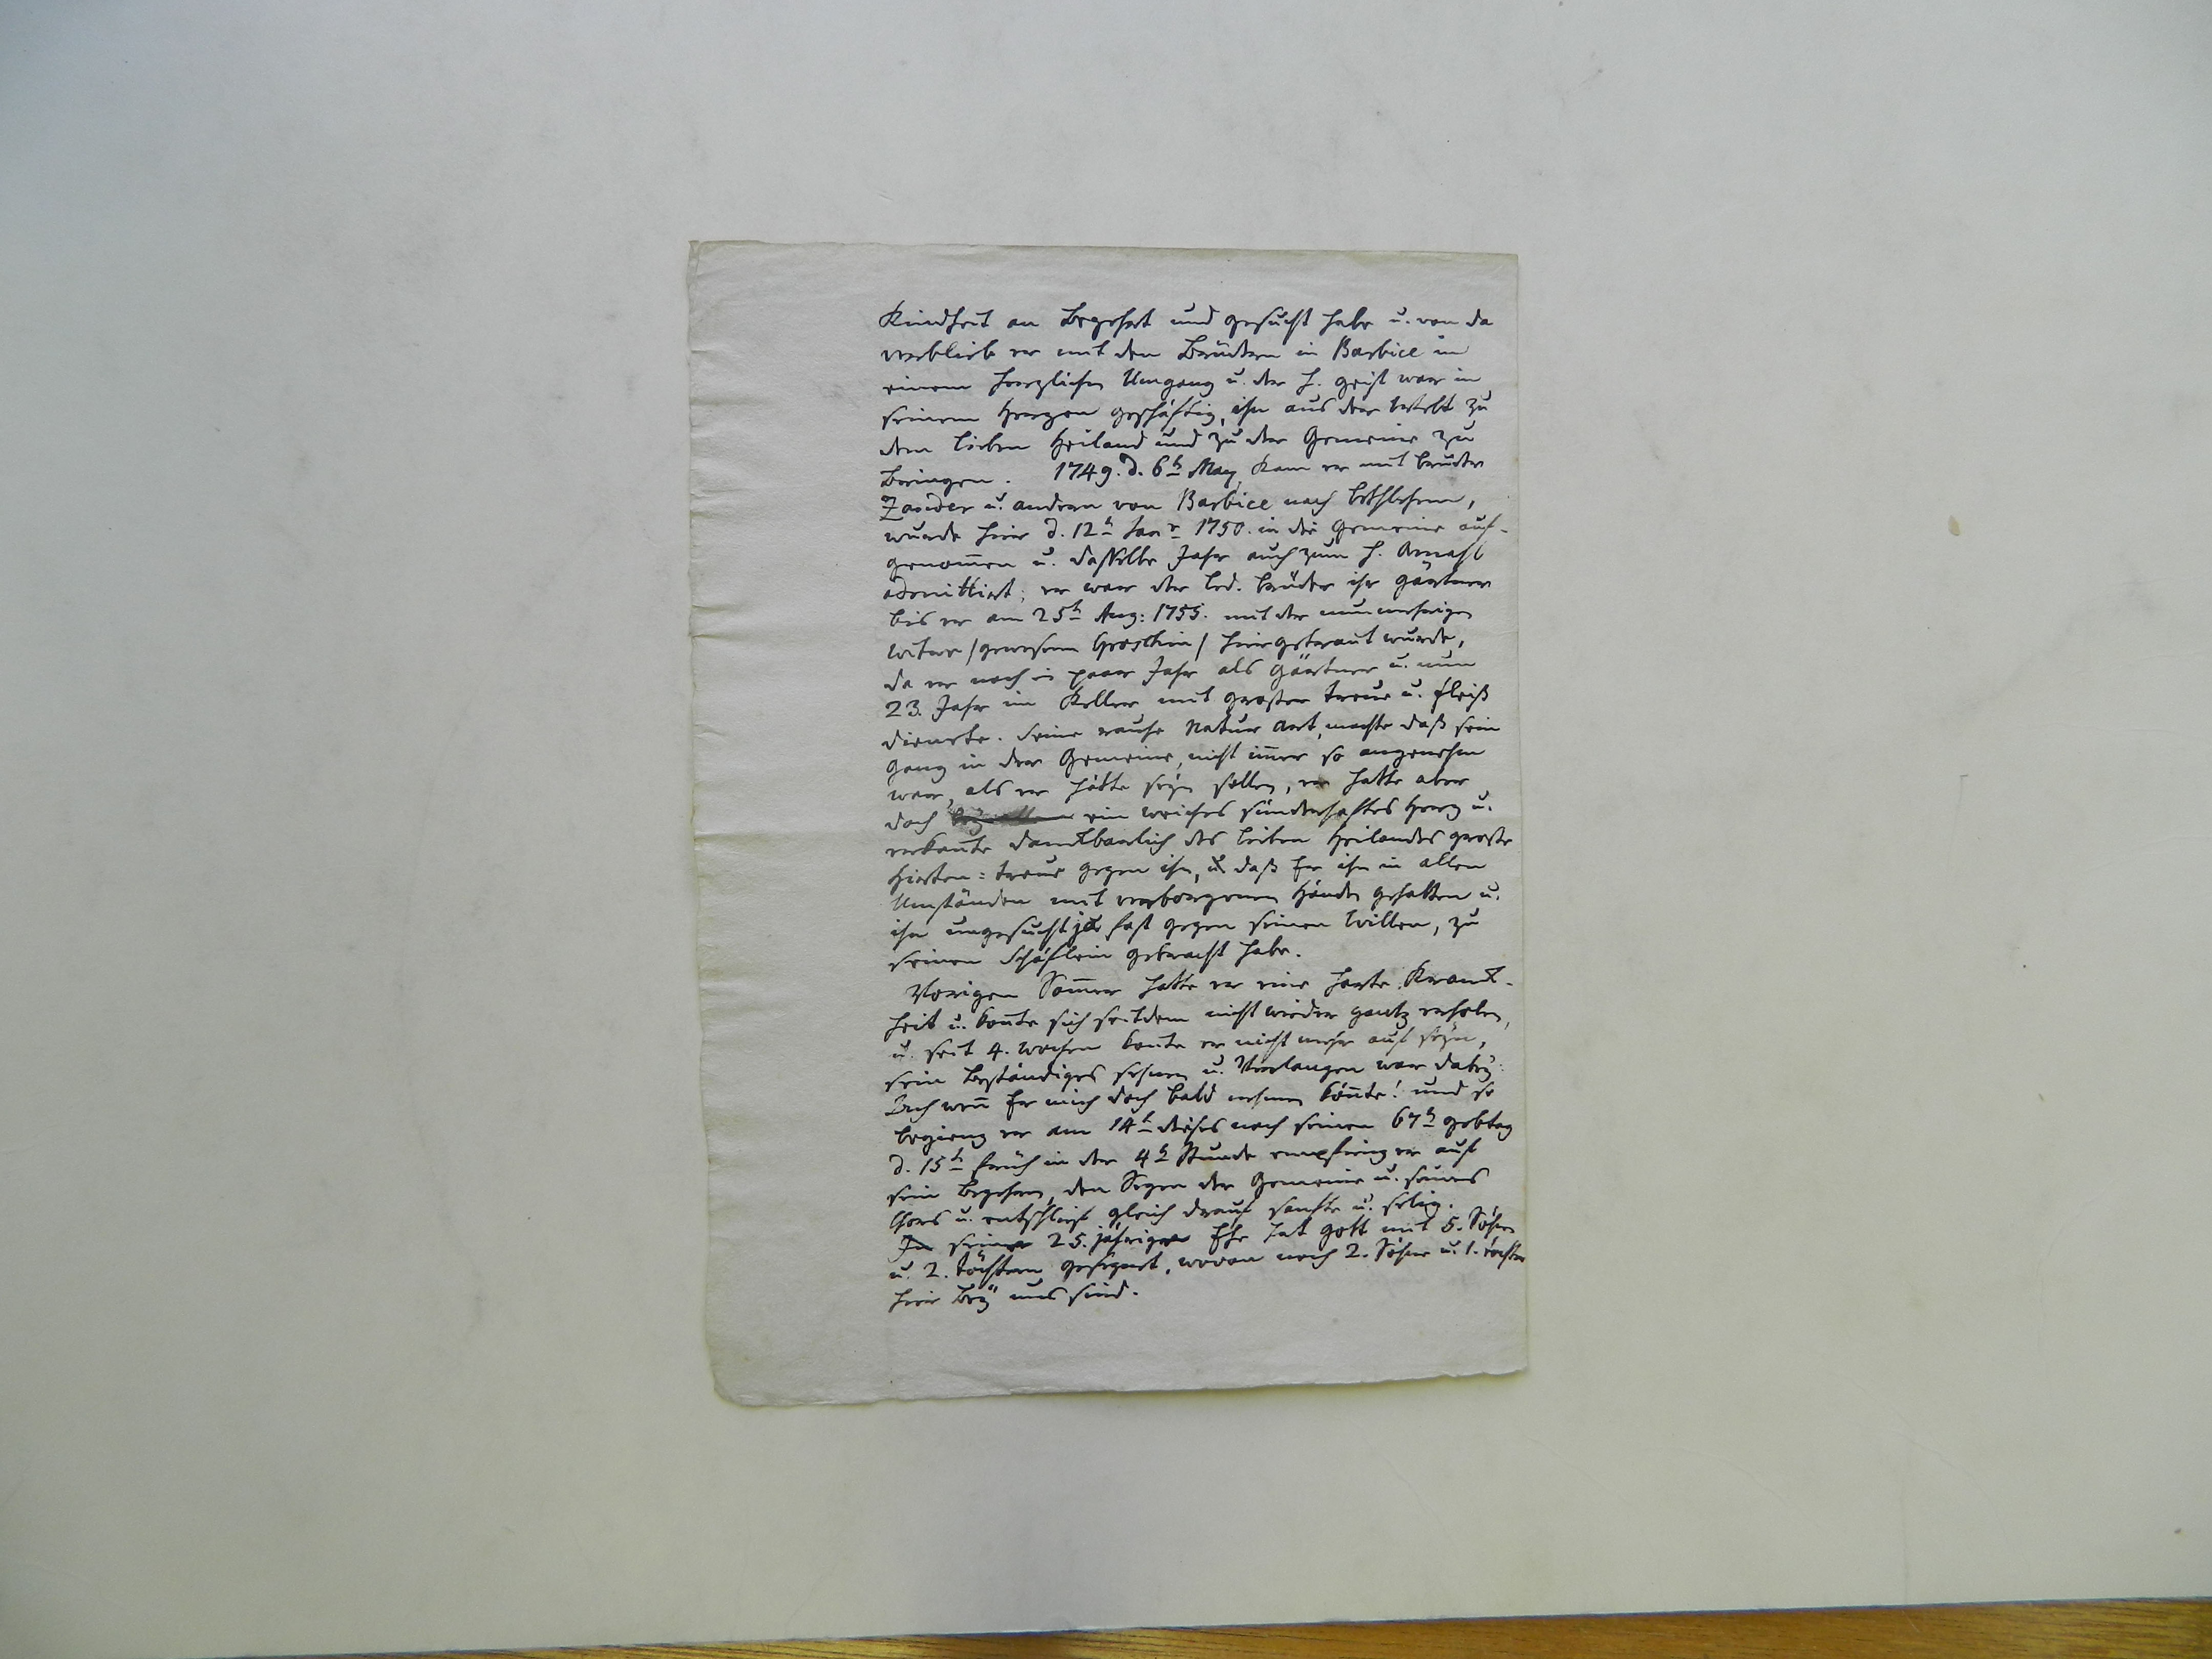 Kindheit an Begehrt und gesucht habe u. von da
verblieb er mit den Brüdern in Barbice in
einem herzlichen Umgang u. der h. geist war in
seinem Herzen geschäftig, ihn aus der Welt zu
dem lieben Heiland und zu der Gemeine zu
Bringen. 1749. d. 6t May, kam er mit bruder
Zander u. andern von Barbice nach bethlehem,
wurde hier d. 12t Janr 1750. in die Gemeine auf-
genom̅en u. dasselbe Jahr auch zum h. Amahl
admittirt; er war der led. brüder ihr gärtner
bis er am 25t Aug: 1755. mit der nunmehrigen
Witwe /gewesene / hier getraut wurde,
da er noch ein paar Jahr als Gärtner u. nun
23. Jahr im Keller mit großer treue u. fleiß
diente. Seine rauhe Natur Art, machte daß sein
gang in der Gemeine, nicht im̅er so angenehm
war, als er hätte seyn sollen, er hatte aber
doch ein weiches sünderhaftes Herz u.
erkan̅te dankbarlich des lieben Heilandes große
Hirten=treue gegen ihn, u. daß Er ihn in allen
Umständen mit verborgenen Händen gehalten u.
ihn ungesucht ja fast gegen seinen Willen, zu
seinen Schäflein gebracht habe.
Vorigen Som̅er hatte er eine harte Krank-
heit u. kon̅te sich seitdem nicht wieder gantz erholen,
u. seit 4. wochen konte er nicht mehr auf seyn,
sein Beständiges sehnen u. Verlangen war dabey:
Ach wen̅ Er mich doch bald nehmen kön̅te! und so
begieng er am 14t dieses noch seinen 67t gebtag
d. 15t früh in der 4t Stunde empfieng er auf
sein Begehren, den Segen der Gemeine u. seines
Chors u. entschlief gleich drauf sanfte u. selig.
In seiner 25. jährigen Ehe hat gott mit 5. Söhnen
u. 2. töchtern gesegnet, wovon noch 2. Söhne u. 1. tochter
hier Bey uns sind.